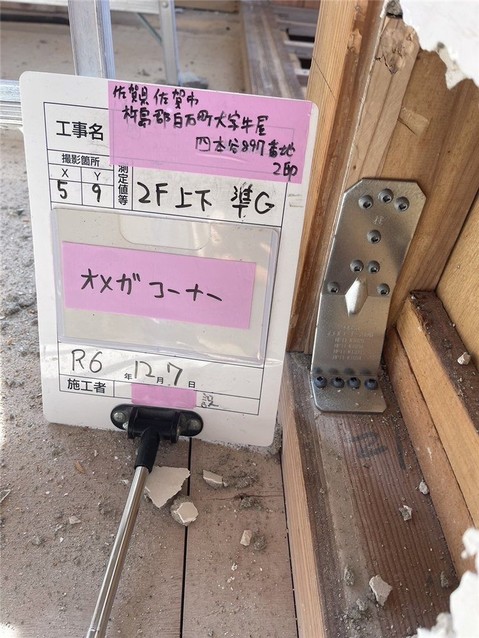 佐賀県佐賀市
工事名 杵島郡白石町大字牛屋
四本谷897番地
2邸
撮影箇所 測定値等
X Y
5 9 2F上下 準G
オメガコーナー
R6 年 12 月 7 日
施工者